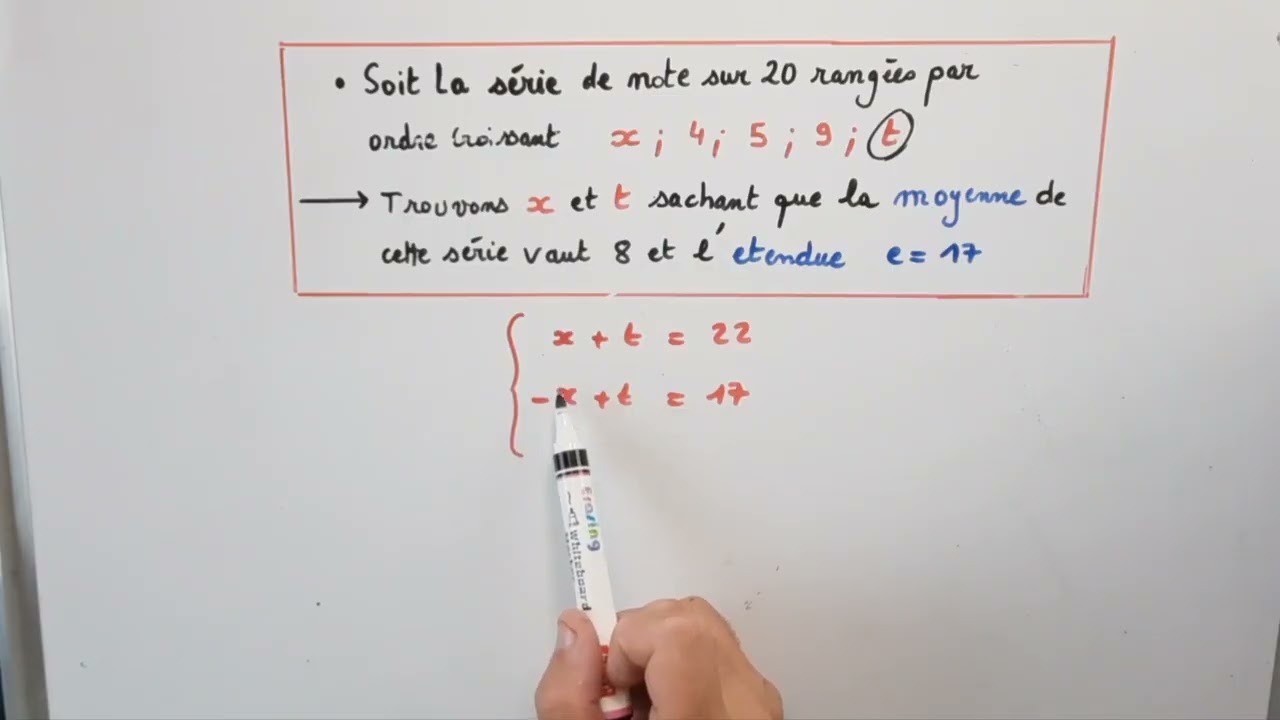 • Soit la série de note sur 20 rangées par
ordre croissant x ; 4 ; 5 ; 9 ; t
→ Trouvons x et t sachant que la moyenne de
cette série vaut 8 et l'etendue e = 17
x + t = 22
-x + t = 17
Erasing
whiteboard